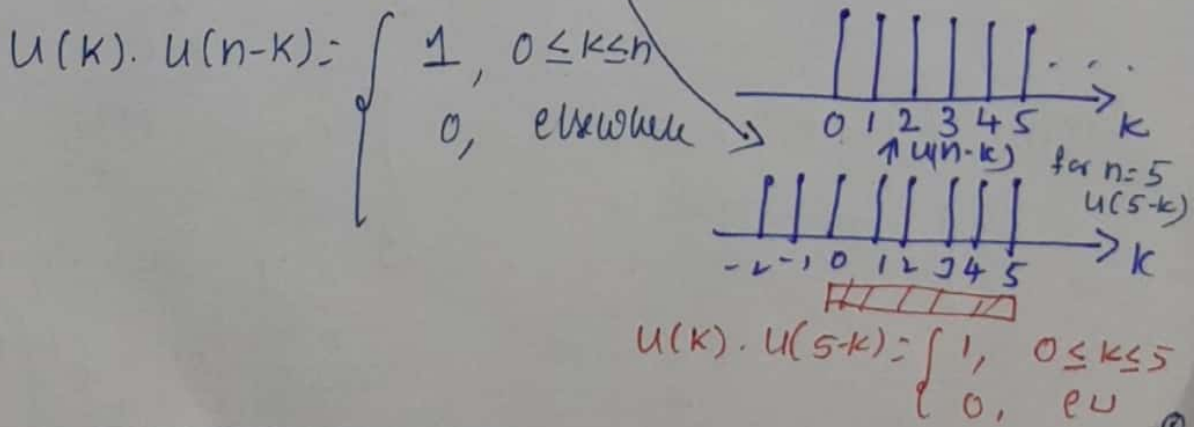 U(K). U(n-K)= { 1, 0≤K≤n
0, elsewhere
0 1 2 3 4 5 . . . K
↑ U(n-K) for n=5
U(5-K)
-2 -1 0 1 2 3 4 5 K
U(K). U(5-K)= { 1, 0≤K≤5
0, ew